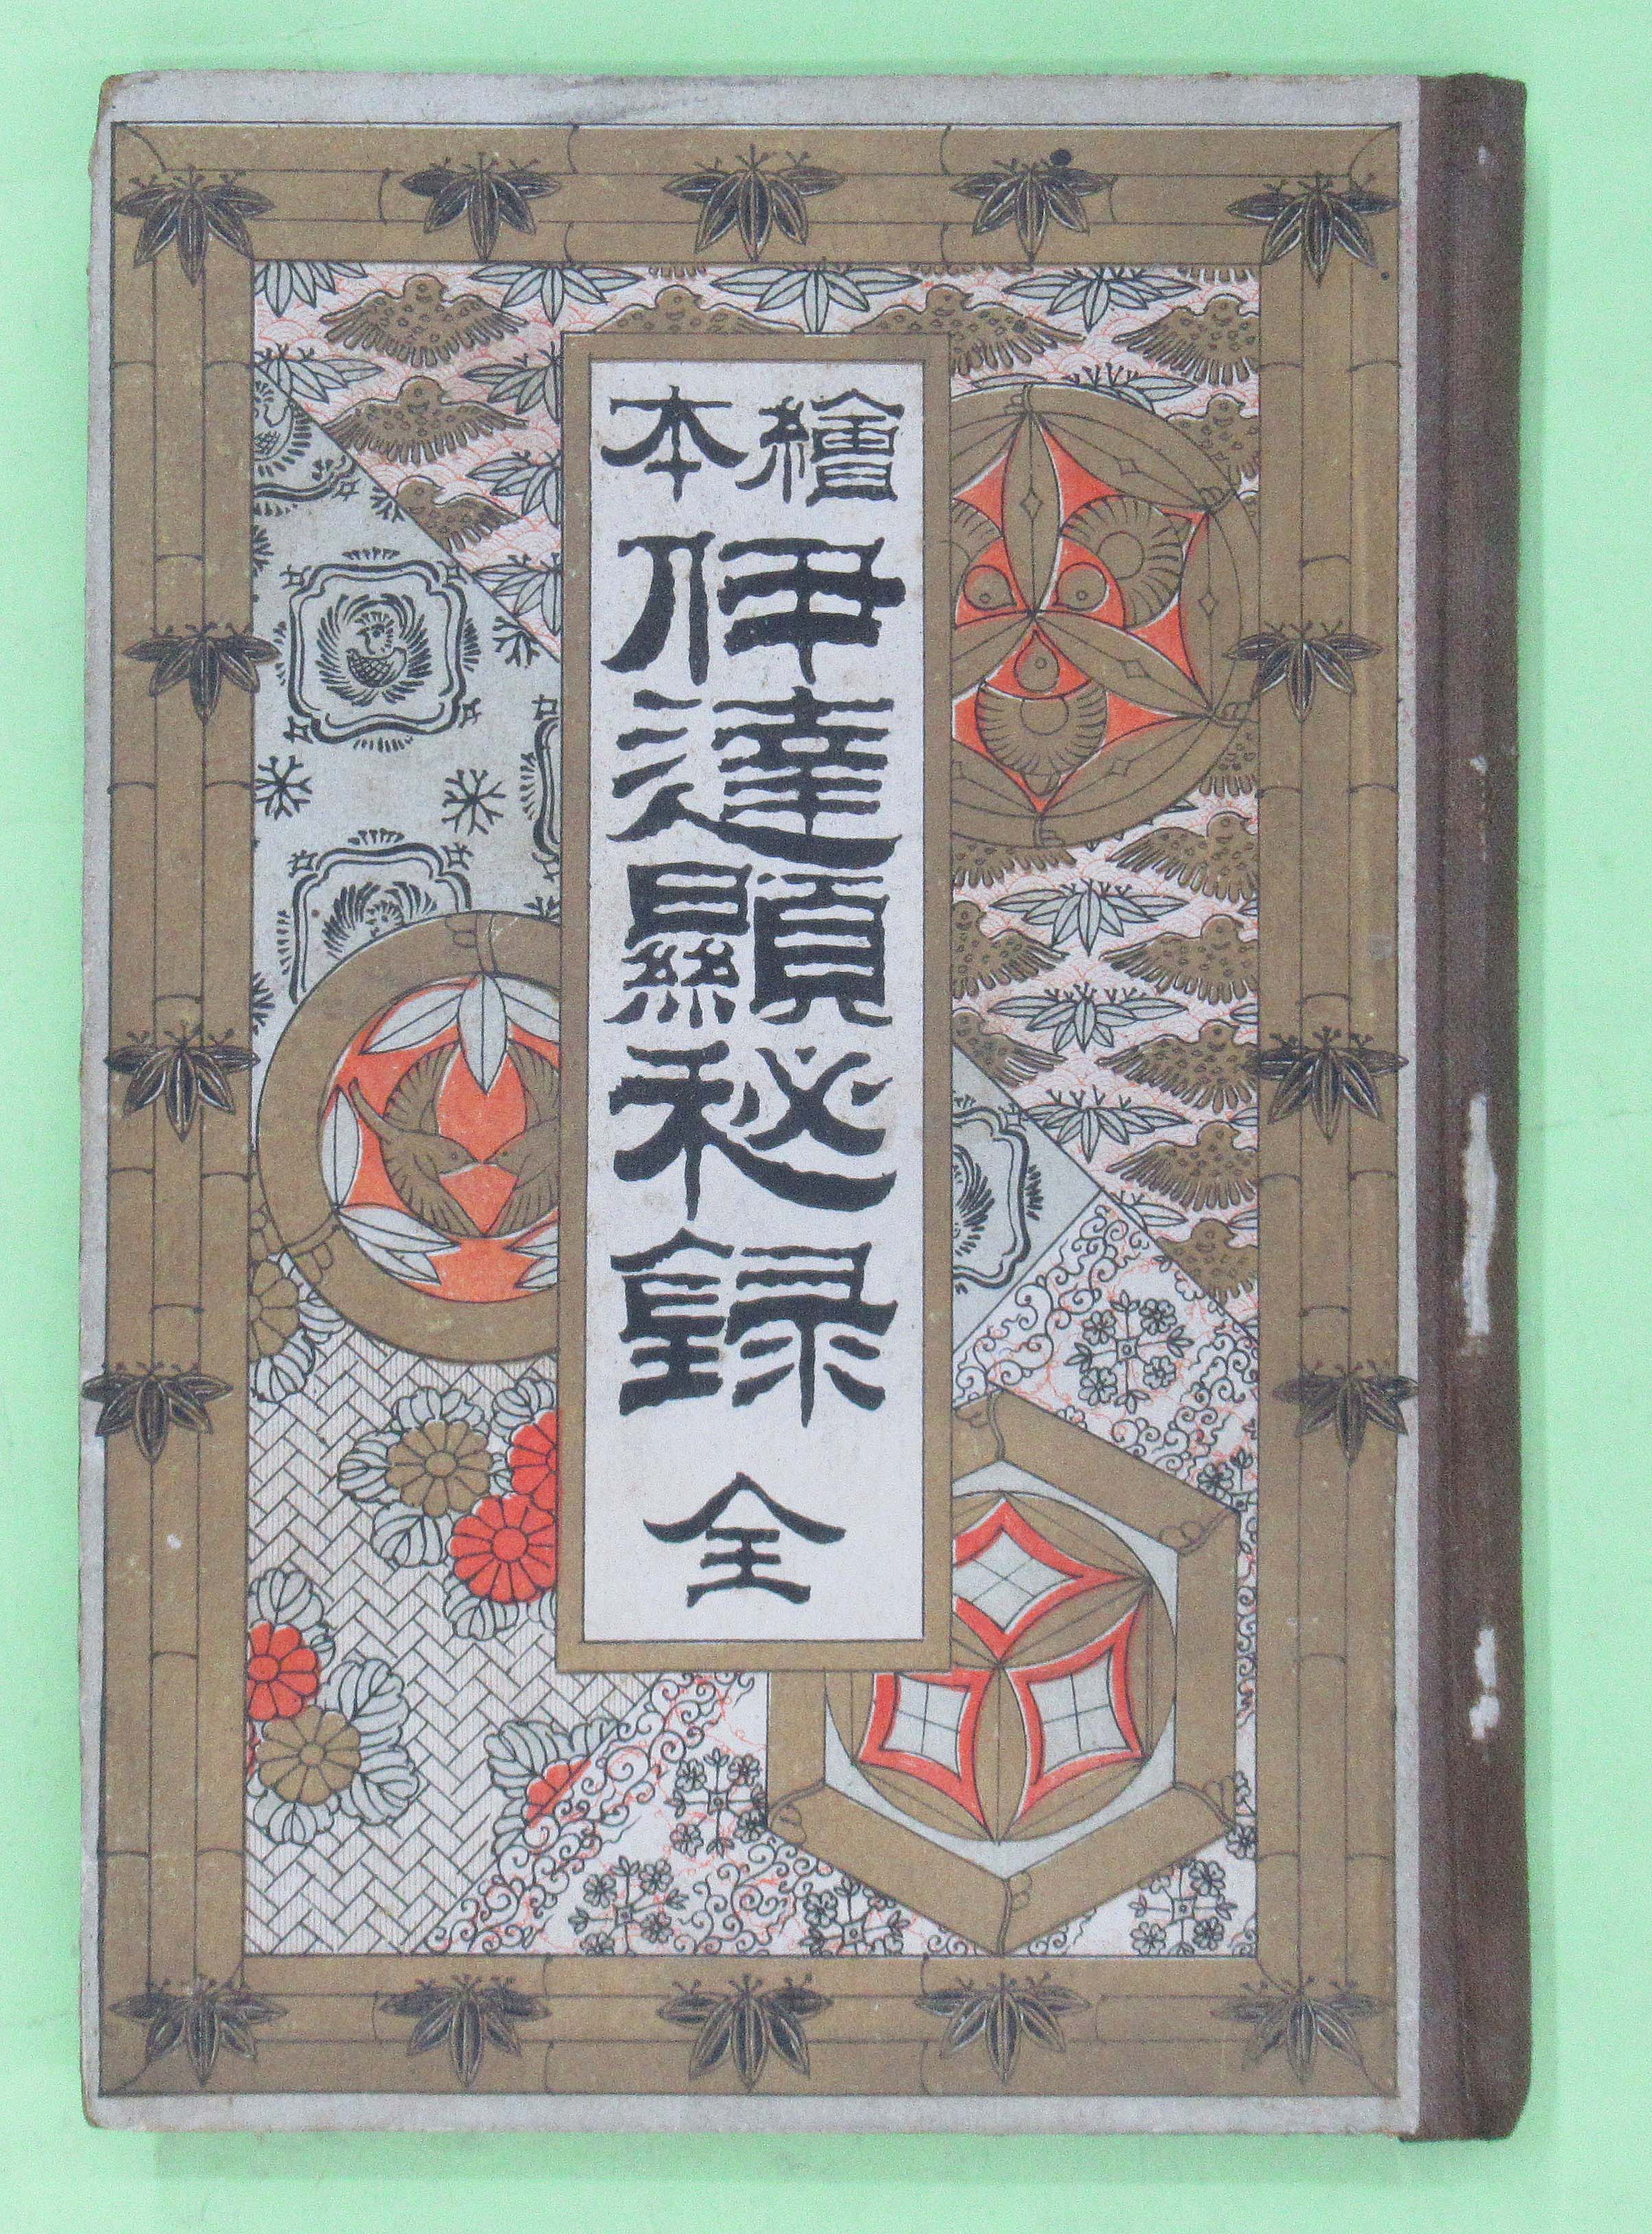 繪本
伊達顯秘録
全